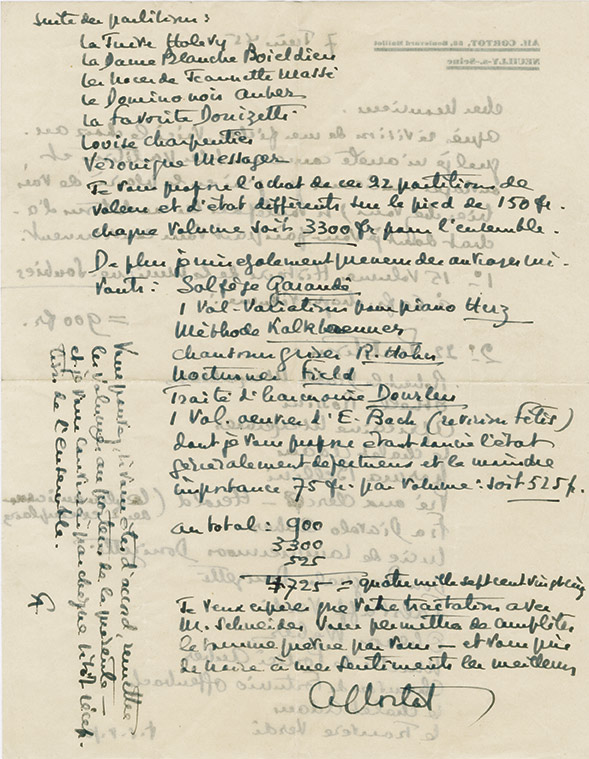 Suite des partitions :
La Juive Halévy
La Dame Blanche Boieldieu
Les Noces de Jeannette Massé
Le Domino noir Auber
La favorite Donizetti
Louise Charpentier
Véronique Messager
Je vous propose l'achat de ces 22 partitions de
valeur et d'état différents sur le pied de 150 fr.
chaque volume soit 3300 fr pour l'ensemble.
De plus je suis également preneur des ouvrages sui-
vants : Solfège Garaudé
1 Vol. Variations pour piano Herz
Méthode Kalkbrenner
Chansons grises R. Hahn
Nocturnes Field
Traité d'harmonie Dourlen
1 Vol. œuvres d'E. Bach (revision Fétis)
dont je vous propose étant donné l'état
généralement défectueux et la moindre
importance 75 fr. par volume : soit 525 f.
au total : 900
3300
525
4725 = quatre mille sept cent vingt cinq
Je veux espérer que votre tractations avec
M. Schneider vous permettra de compléter
la somme prévue par vous — et vous prie
de croire à mes sentiments les meilleurs
A Cortot
Vous pouvez, si vous êtes d'accord, remettre
les volumes au porteur de la présente —
et je vous couvrirai par chèque sitôt récep-
tion de l'ensemble.